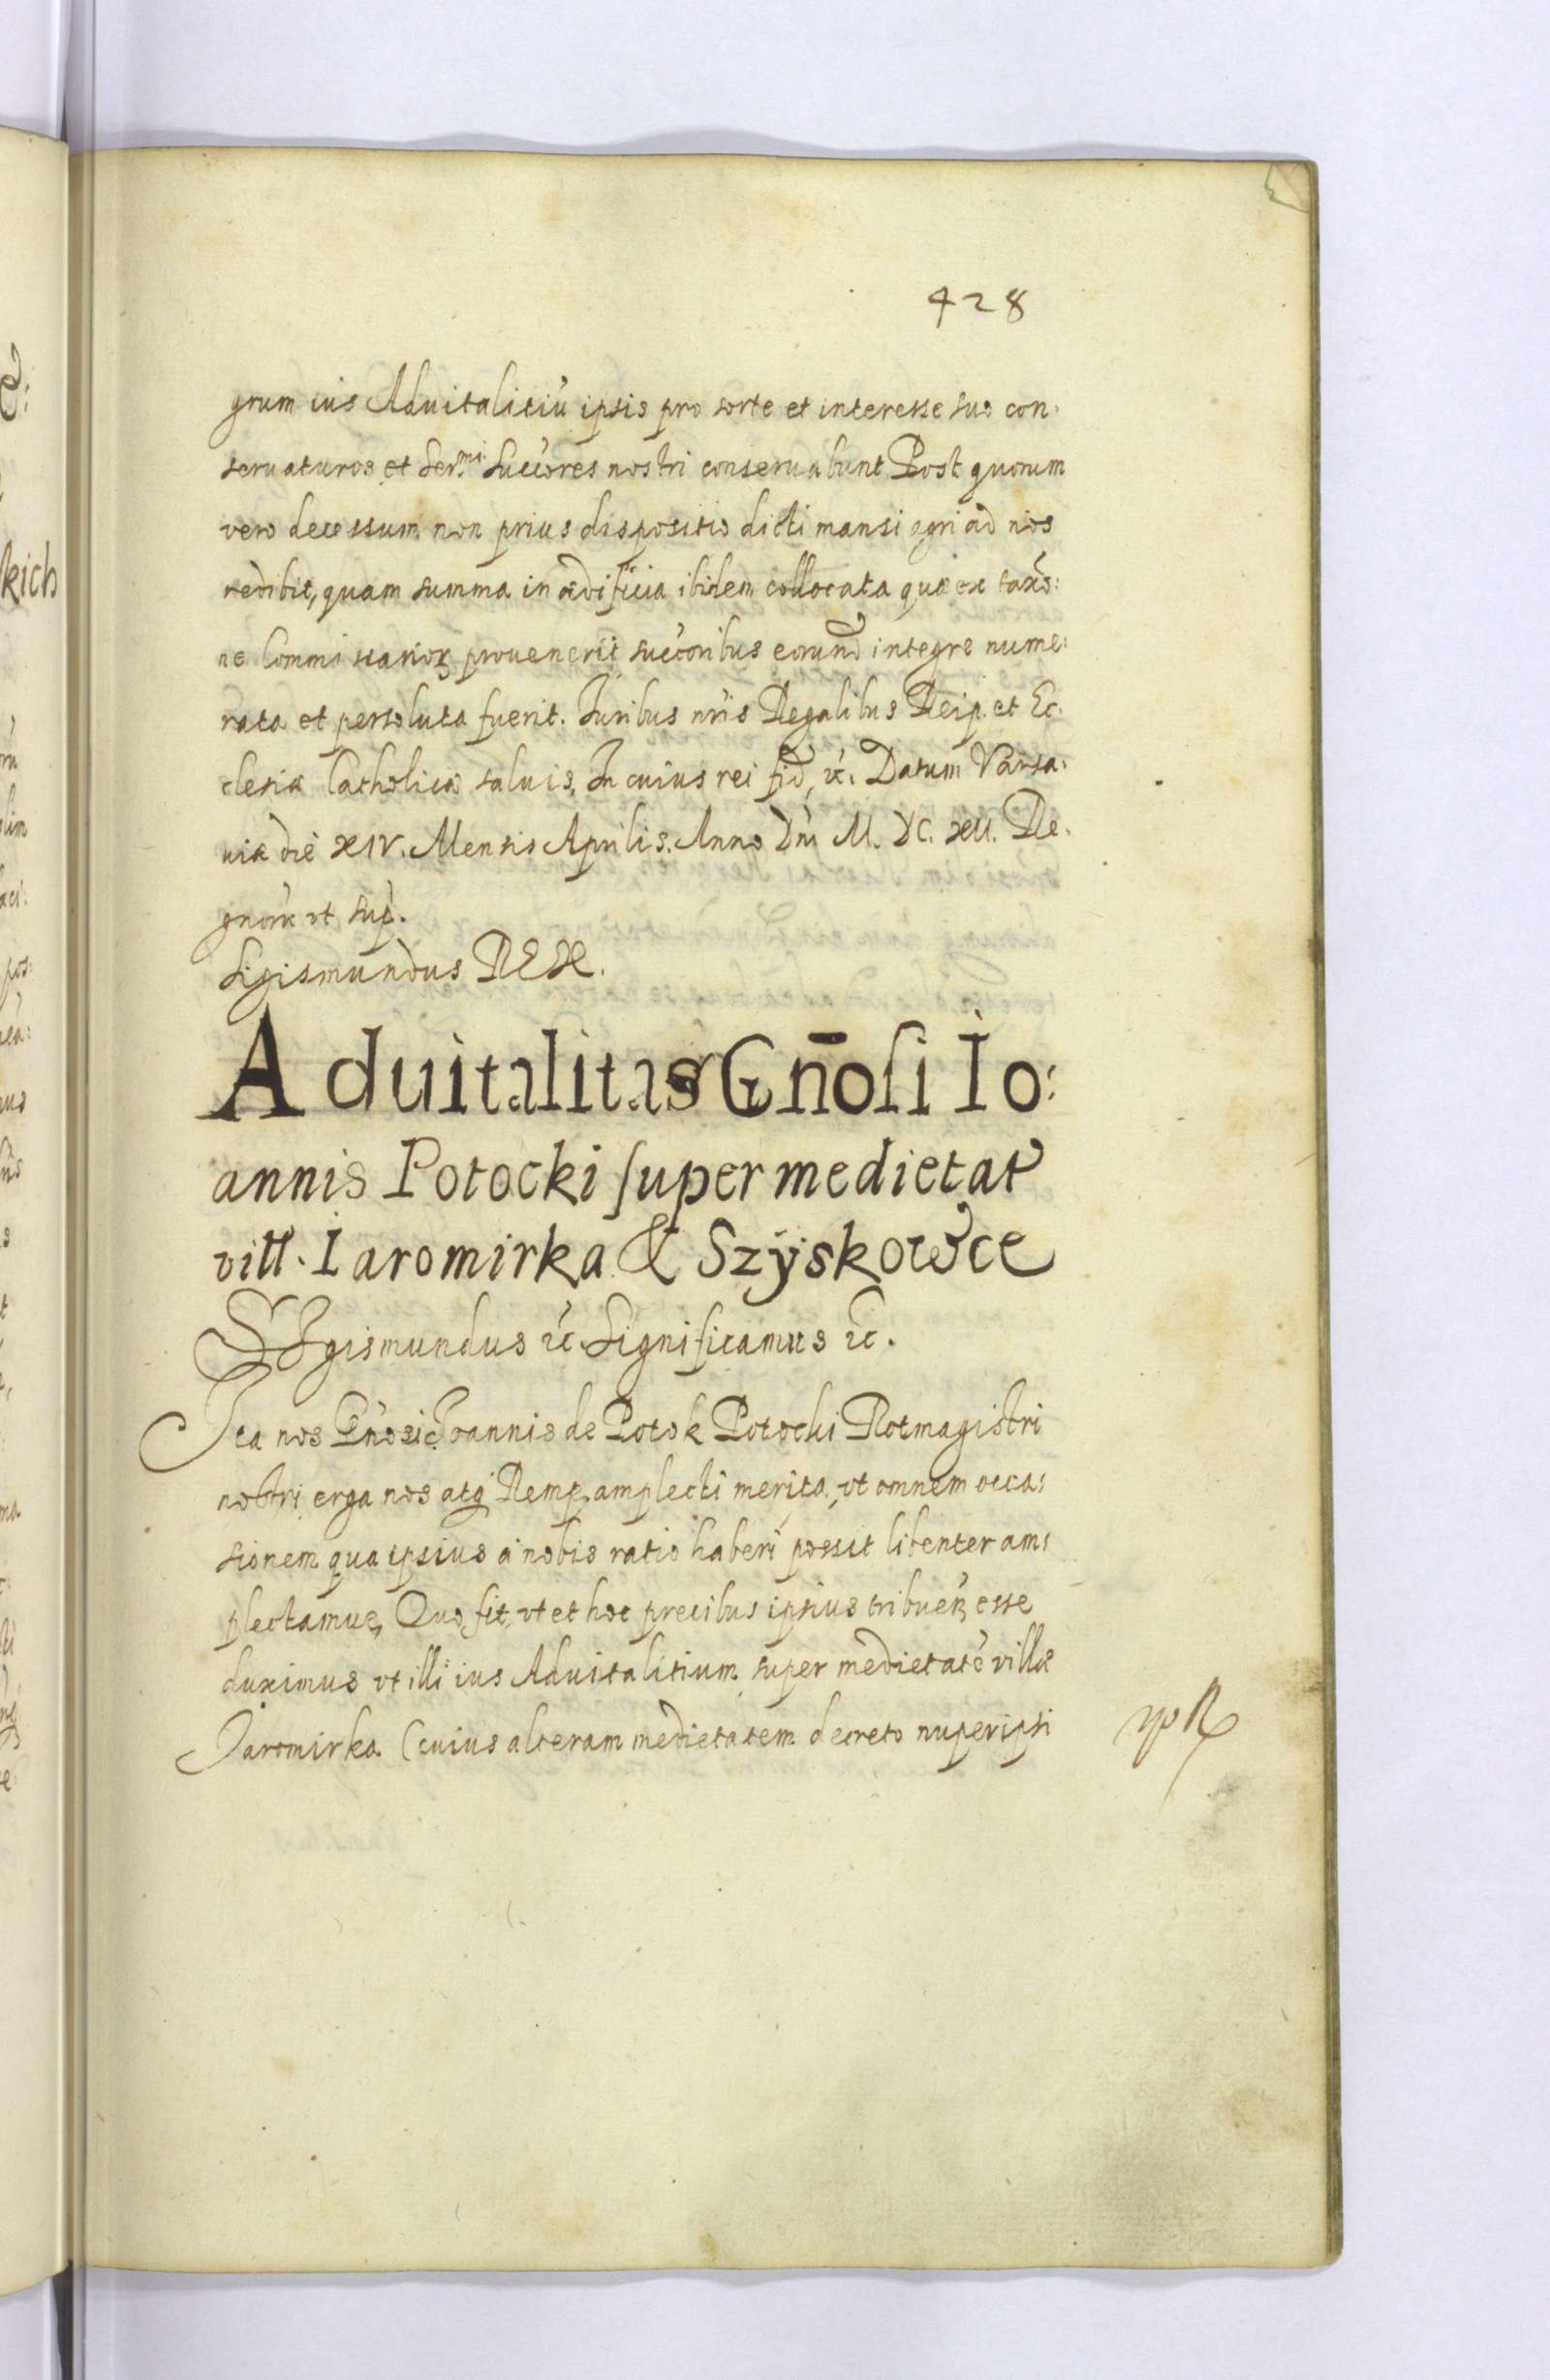 428
grum ius Aduitalitiũ ipsis pro sorte et interesse suo con:
seruaturos et Ser.mi Succores nostri conseruabunt Post quorum
vero decessum non prius dispositio dicti mansi agri ad nos
redibit, quam summa in ædificia ibidem collocata quæ ex taxõ:
ne Commissarioꝝ prouenerit succoribus eorund integre nume:
rata et persoluta fuerit. Iuribus nris Regalibus Reip. et Ec:
clesiæ Catholicæ saluis, In cuius rei fid, ꝛc. Datum Varsa:
uiæ die XIV. Mensis Aprilis. Anno Dni M. DC. XII. Re:
gnorũ vt sup.
Sigismundus REX.
Aduitalitas Gn̄osi Io:
annis Potocki super medietat
vill. Iaromirka & Szÿskowce
SIgismundus ꝛc. Significamus ꝛc.
Ita nos Gnosi Ioannis de Potok Potocki Rotmagistri
nostri erga nos atq Remp. amplecti merita, vt omnem occa:
sionem qua ipsius a nobis ratio haberi possit libenter am:
plectamur, Quo fit, vt et hoc precibus ipsius tribuen, esse
duximus vt illi ius Aduitalitium super medietatẽ villæ
Iaromirka (cuius alteram medietatem decreto nuper ipsi